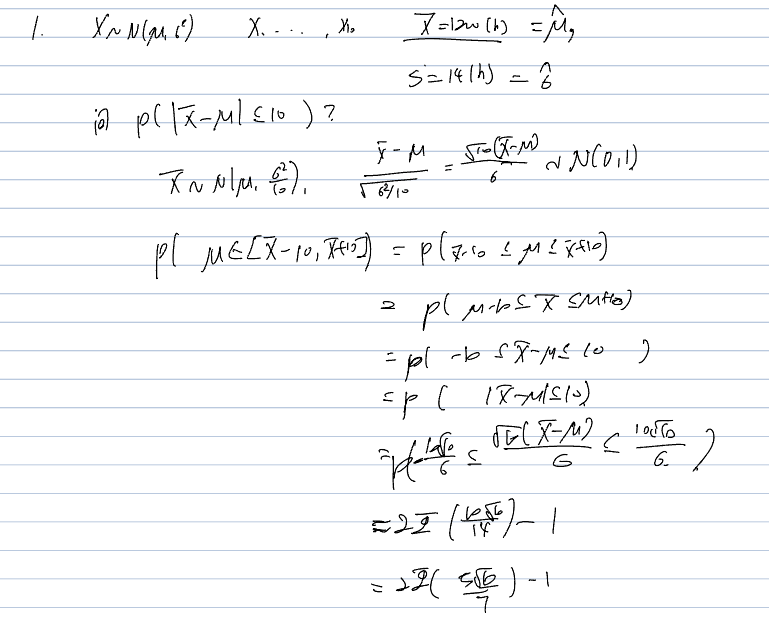 1. X~N(μ, σ²) X₁, ..., X₁₀ X̄=1200(h) = μ̂,
S=14(h) = σ̂
问 p(|X̄-μ|≤10)?
X̄~N(μ, σ²/10), (X̄-μ)/√(σ²/10) = √10(X̄-μ)/σ ~ N(0,1)
p( μ∈[X̄-10, X̄+10]) = p(X̄-10 ≤ μ ≤ X̄+10)
= p( μ-10 ≤ X̄ ≤ μ+10)
= p( -10 ≤ X̄-μ ≤ 10 )
= p ( |X̄-μ|≤10)
= p(-10√10/σ ≤ √10(X̄-μ)/σ ≤ 10√10/σ )
= 2Φ(10√10/14) - 1
= 2Φ( 5√10/7 ) - 1